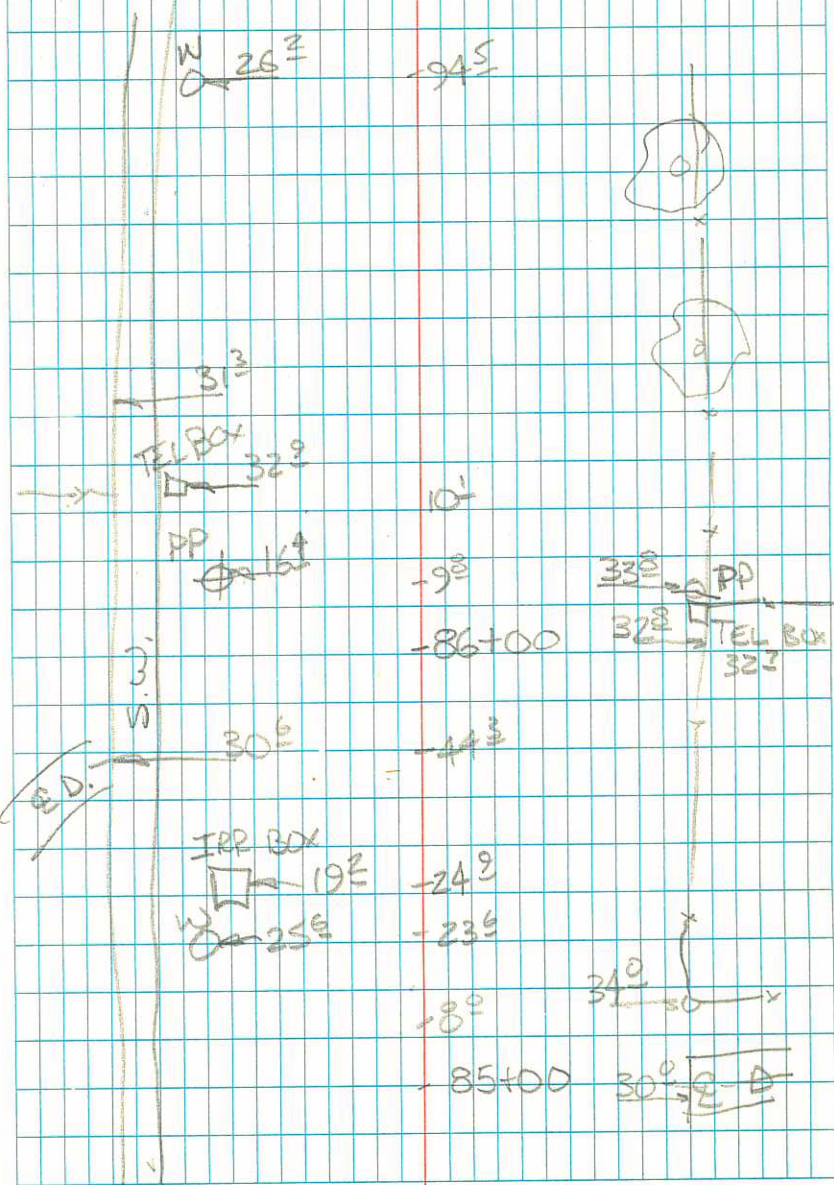 W 26² -94⁵
31³
TEL BOX
32⁹
10¹
PP 16⁴ -9⁰ 33⁰ PP
-86+00 32⁸ TEL BOX
32⁷
S.W.
30⁶ -44³
℄ D.
IRR BOX
19² -24⁹
W 25⁶ -23⁶
34⁰
-8⁰
-85+00 30⁰ ℄ D